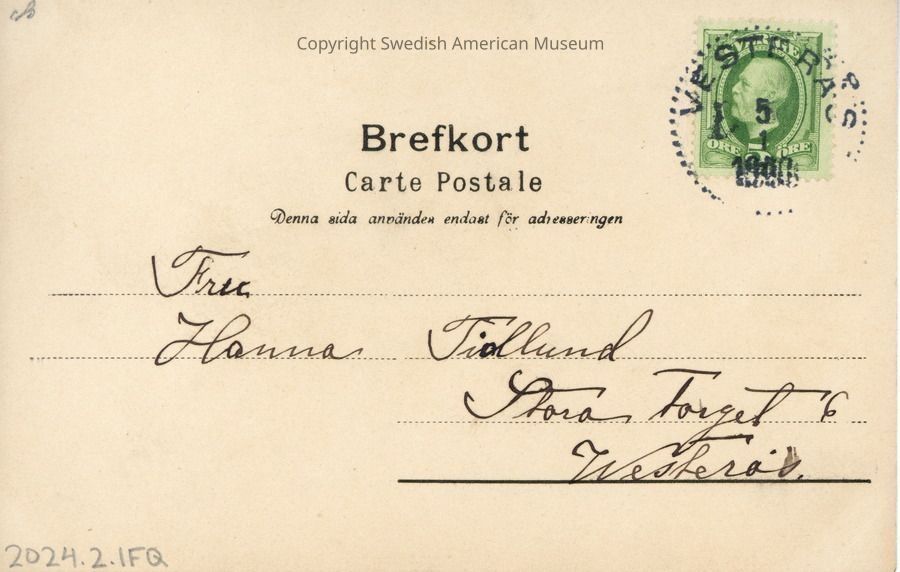 Copyright Swedish American Museum
VESTERÅS
5
1
ÖRE ÖRE
Brefkort
Carte Postale
Denna sida användes endast för adresseringen
Fru
Hanna Tidlund
Stora Torget 6
Westerås.
2024.2.1FQ